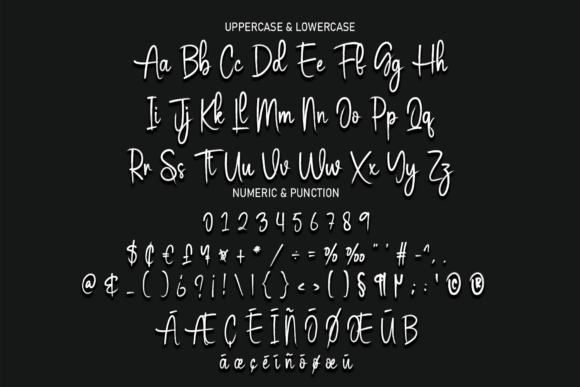 UPPERCASE & LOWERCASE
Aa Bb Cc Dd Ee Ff Gg Hh
Ii Jj Kk Ll Mm Nn Oo Pp Qq
Rr Ss Tt Uu Vv Ww Xx Yy Zz
NUMERIC & PUNCTION
0 1 2 3 4 5 6 7 8 9
$ ₵ € £ ¥ ¤ + * / ÷ = % ‰ " ' # - ^ , .
@ & _ ( ) ¿ ? ¡ ! \ | { } < > ( ) § ¶ µ ; : ' © ®
Á Æ Ç É Í Ñ Ó Ø Æ Ú B
á æ ç é í ñ ó ø œ ú